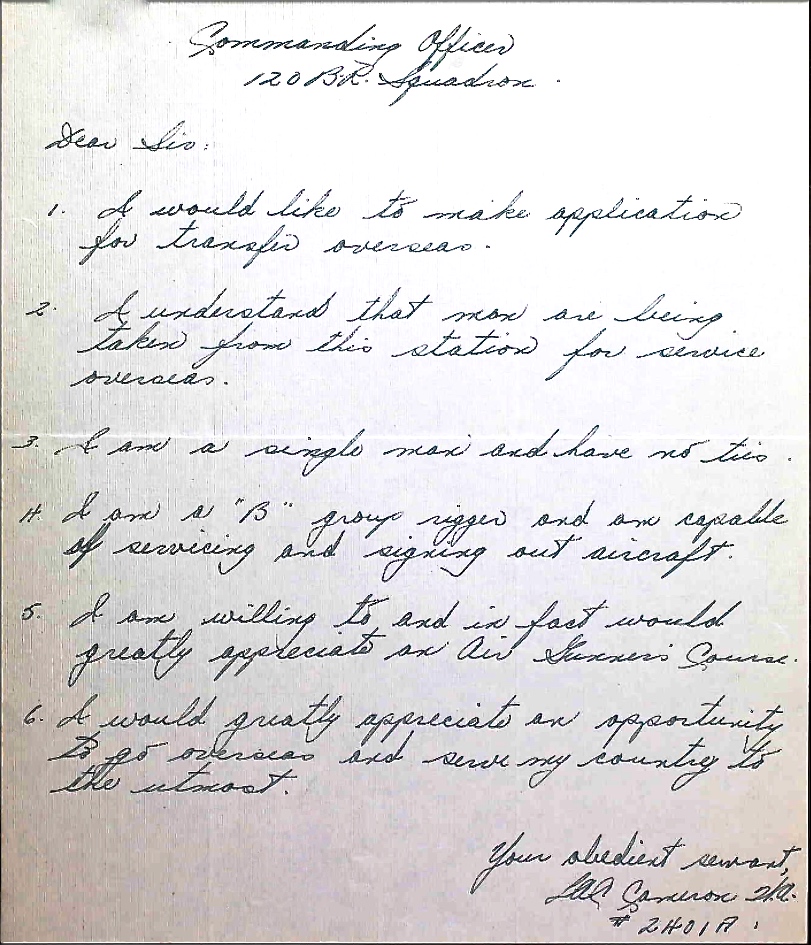 Commanding Officer
120 BR. Squadron.
Dear Sir:
1. I would like to make application
for transfer overseas.
2. I understand that man are being
taken from this station for service
overseas.
3. I am a single man and have no ties.
4. I am a "B" group rigger and am capable
of servicing and signing out aircraft.
5. I am willing to and in fact would
greatly appreciate an Air Gunner's Course.
6. I would greatly appreciate an opportunity
to go overseas and serve my country to
the utmost.
Your obedient servant,
LAC Cameron
# 2401A.